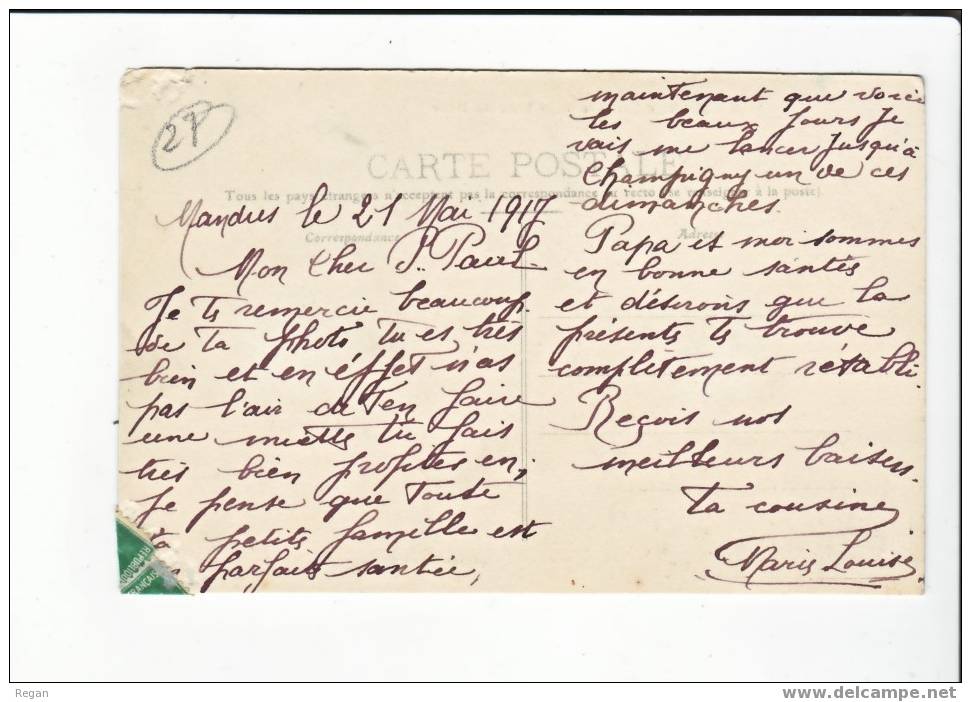 27
CARTE POSTALE
Tous les pays étrangers n'acceptent pas la correspondance au recto (se renseigner à la poste).
Correspondance
Adresse
Mandres le 21 Mai 1917
Mon Cher P. Paul
Je te remercie beaucoup
de ta photo tu es très
bien et en éffet n'as
pas l'air de t'en faire
une miette tu fais
très bien profites en,
je pense que toute
ta petite famille est
en parfaite santée,
maintenant que voici
les beaux jours je
vais me lancer jusqu'à
Champigny un de ces
dimanches.
Papa et moi sommes
en bonne santés
et désirons que la
présente te trouve
complètement rétabli.
Reçois nos
meilleurs baisers.
Ta cousine
Marie Louise
RÉPUBLIQUE
FRANÇAISE
Regan
www.delcampe.net